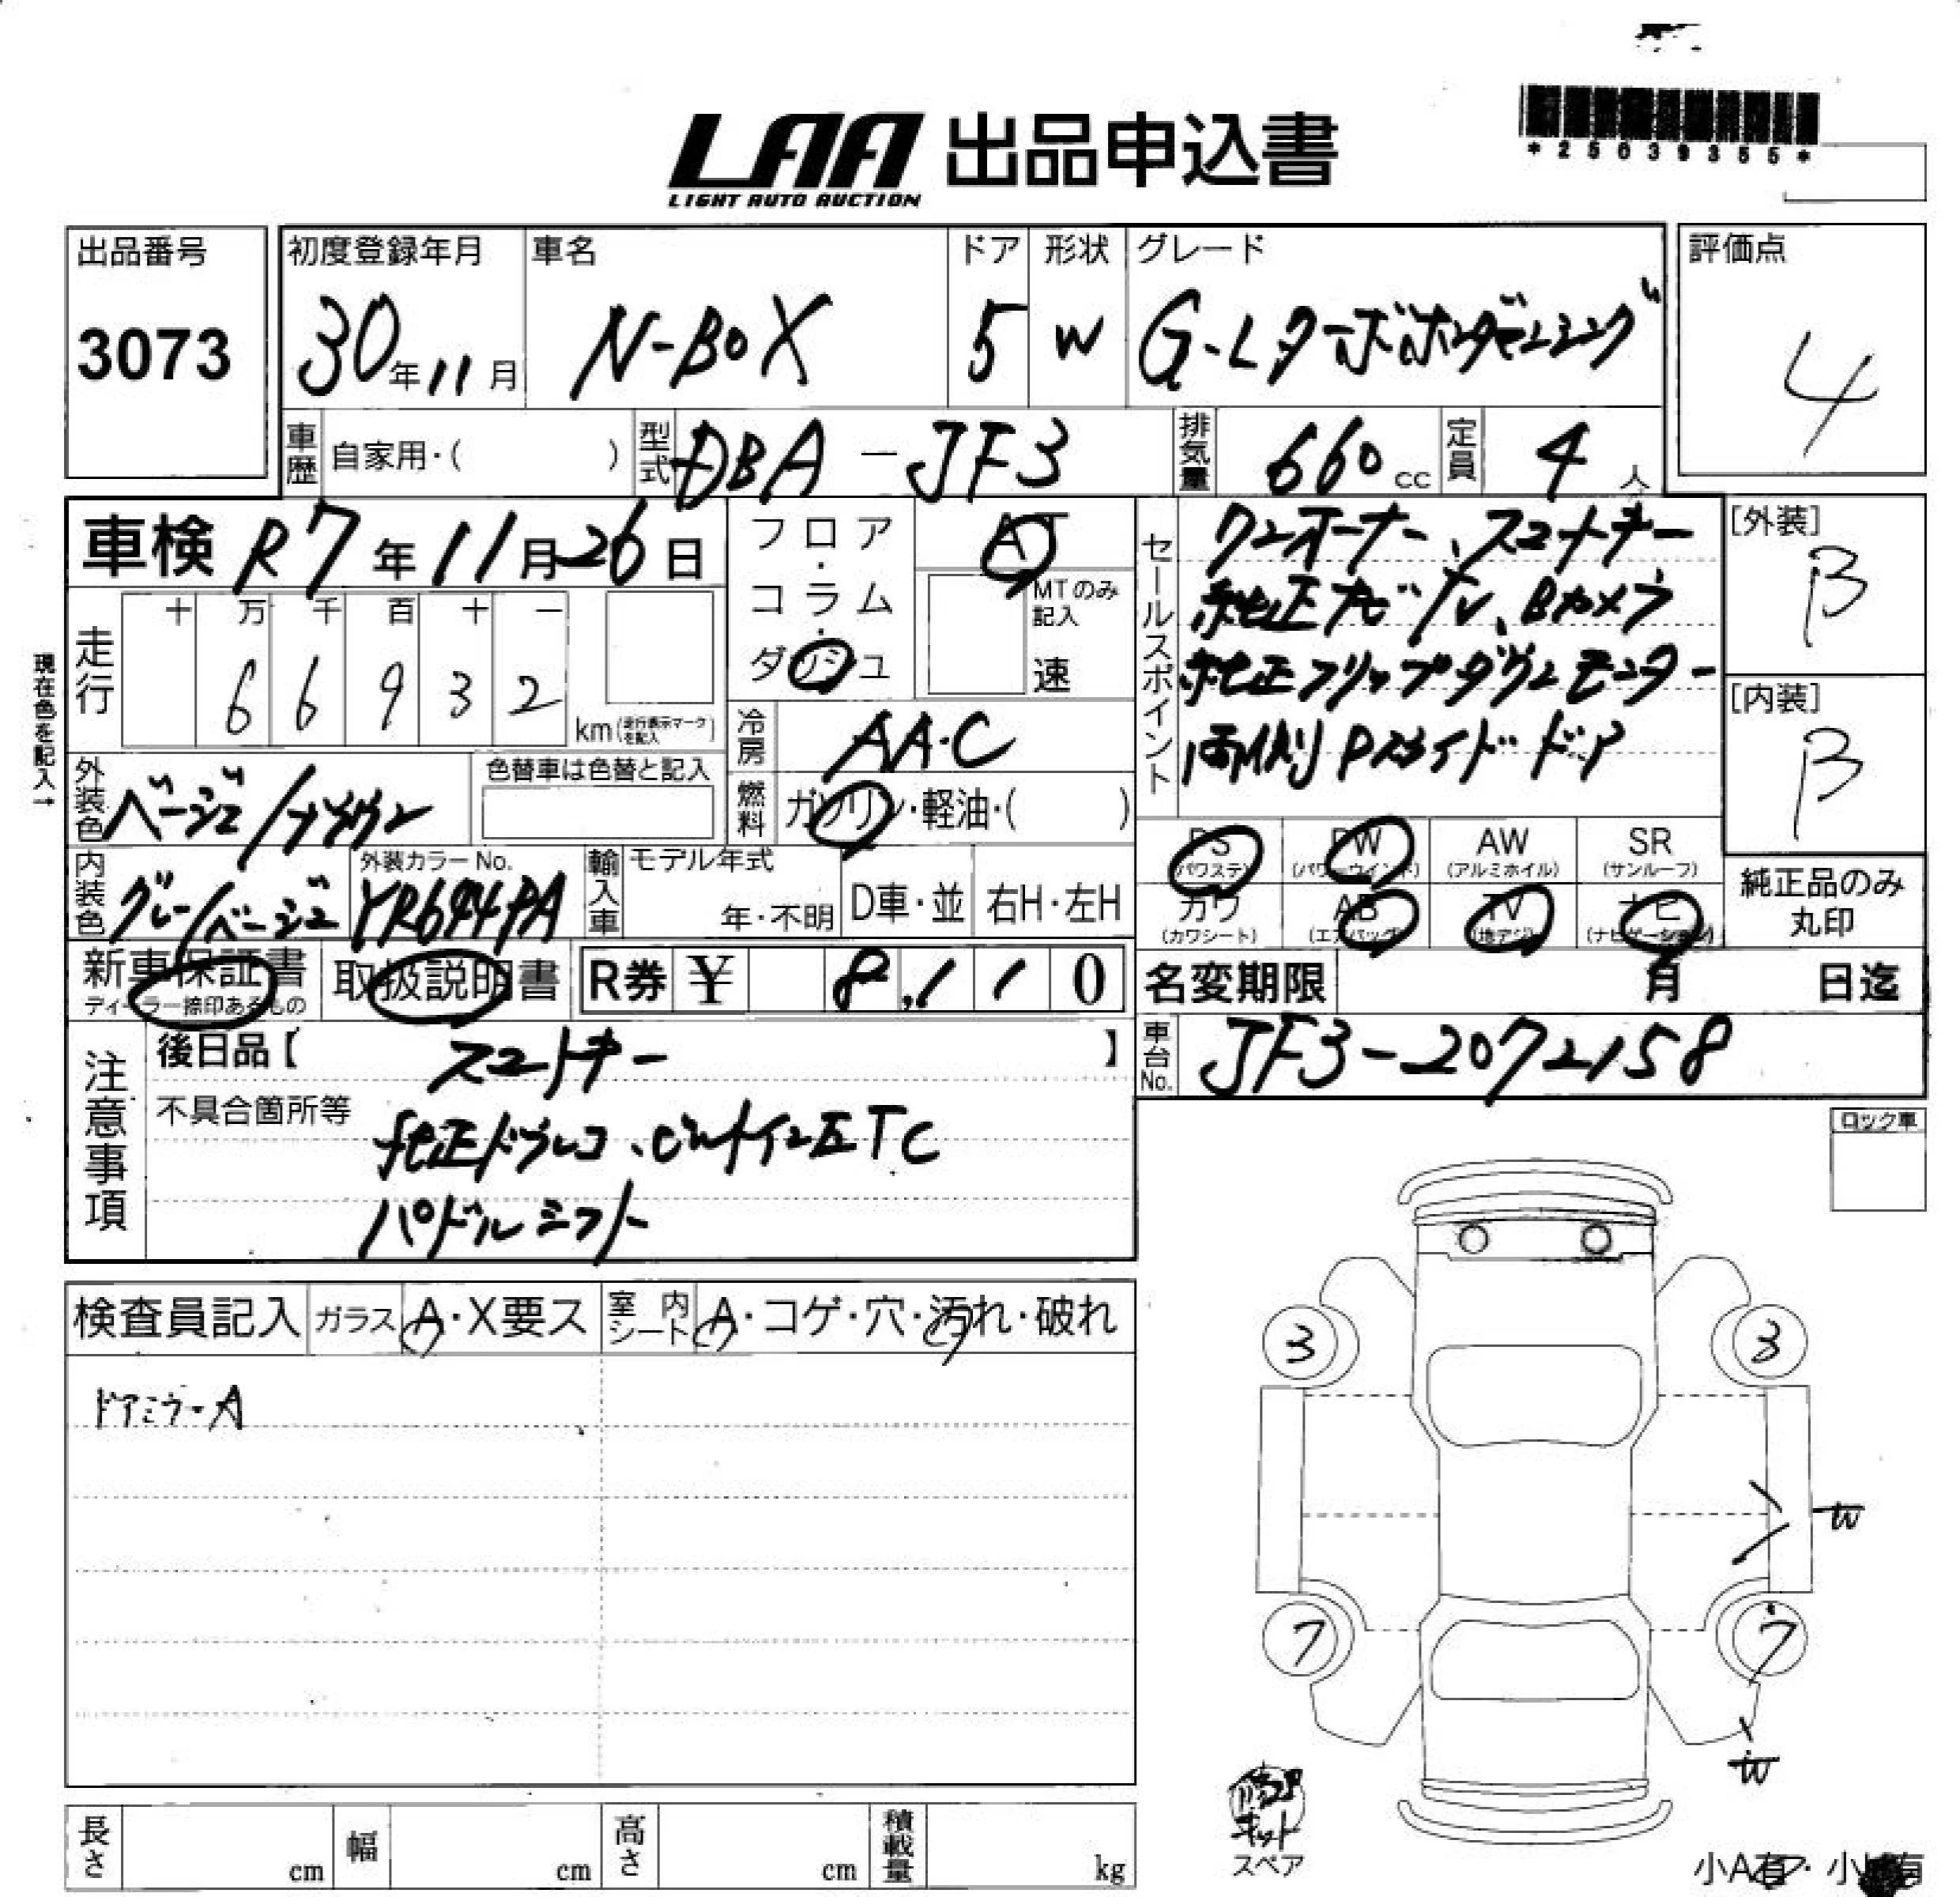 *25039355*
LAA 出品申込書
LIGHT AUTO AUCTION
出品番号
3073
初度登録年月
30年11月
車名
N-BOX
ドア
5
形状
W
グレード
G・Lターボホンダセンシング
評価点
4
車歴 自家用・( )
型式 DBA-JF3
排気量 660cc
定員 4人
車検 R7年11月26日
フロア・コラム・ダッシュ
AT
MTのみ記入
速
セールスポイント
ワンオーナー、スマートキー
純正ナビ/TV、Bカメラ
純正フリップダウンモニター
両側Pスライドドア
[外装]
B
[内装]
B
現在色を記入→
走行
十 万 千 百 十 一
6 6 9 3 2
km(走行表示マークを記入)
冷房 AAC
燃料 ガソリン・軽油・( )
外装色 ベージュ/ブラウン
色替車は色替と記入
内装色 グレー/ベージュ
外装カラーNo.
YR644PA
輸入車
モデル年式
年・不明
D車・並
右H・左H
PS (パワステ)
PW (パワーウインド)
AW (アルミホイル)
SR (サンルーフ)
カワ (カワシート)
AB (エアバッグ)
TV (地デジ)
ナビ (ナビゲーション)
純正品のみ丸印
新車保証書
ディーラー捺印あるもの
取扱説明書
R券 ¥ 8,110
名変期限 月 日迄
車台No. JF3-2072158
注意事項
後日品【 スマートキー 】
不具合箇所等
純正ドラレコ、ビルトインETC
パドルシフト
ロック車
検査員記入
ガラス A・X要ス
室内シート A・コゲ・穴・汚れ・破れ
ドアミラーA
3
3
W
7
7
W
修理キット
スペア
長さ cm
幅 cm
高さ cm
積載量 kg
小A有・小
有